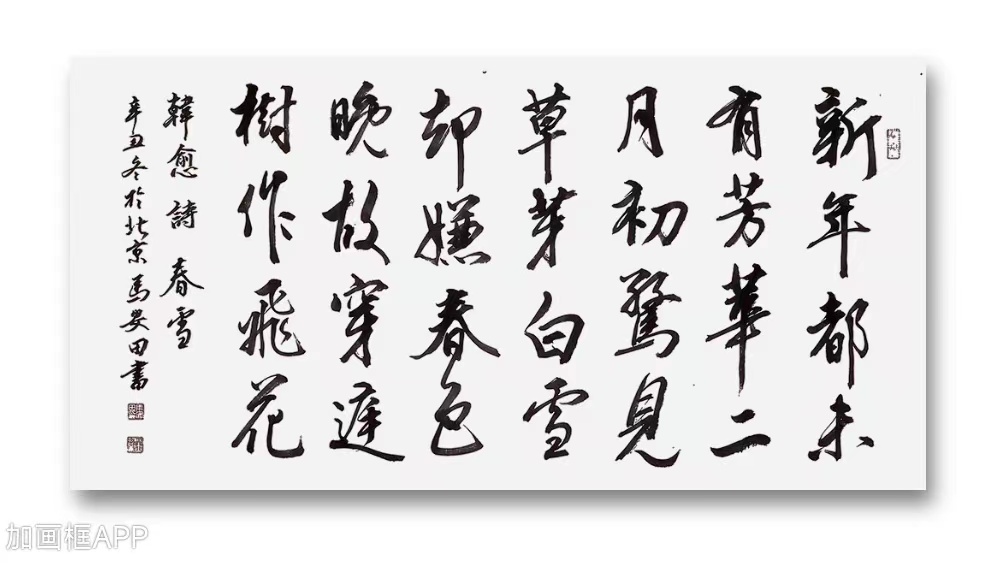 新年都未
有芳華二
月初驚見
草芽白雪
却嫌春色
晚故穿庭
樹作飛花
韓愈詩 春雪
辛丑冬於北京馬安田書
加画框APP